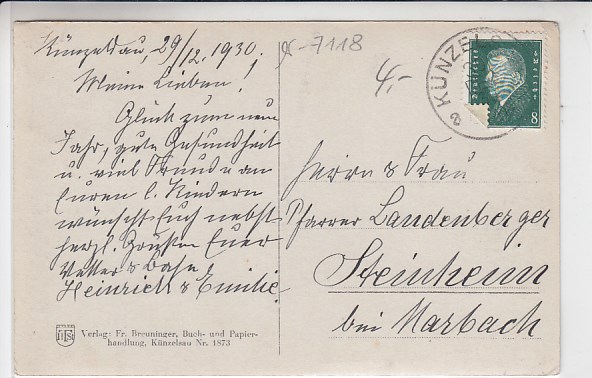 Künzelsau, 29/12. 1930.
Meine Lieben!
Glück zum neuen
Jahr, gute Gesundheit
u. viel Freude an
Euren l. Kindern
wünscht Euch nebst
herzl. Grüßen Euer
Vetter & Base
Heinrich & Emilie
x-7118
4,-
KÜNZELS
8
Herrn & Frau
Pfarrer Landenberger
Steinheim
bei Marbach
Verlag: Fr. Breuninger, Buch- und Papier-
handlung, Künzelsau Nr. 1873